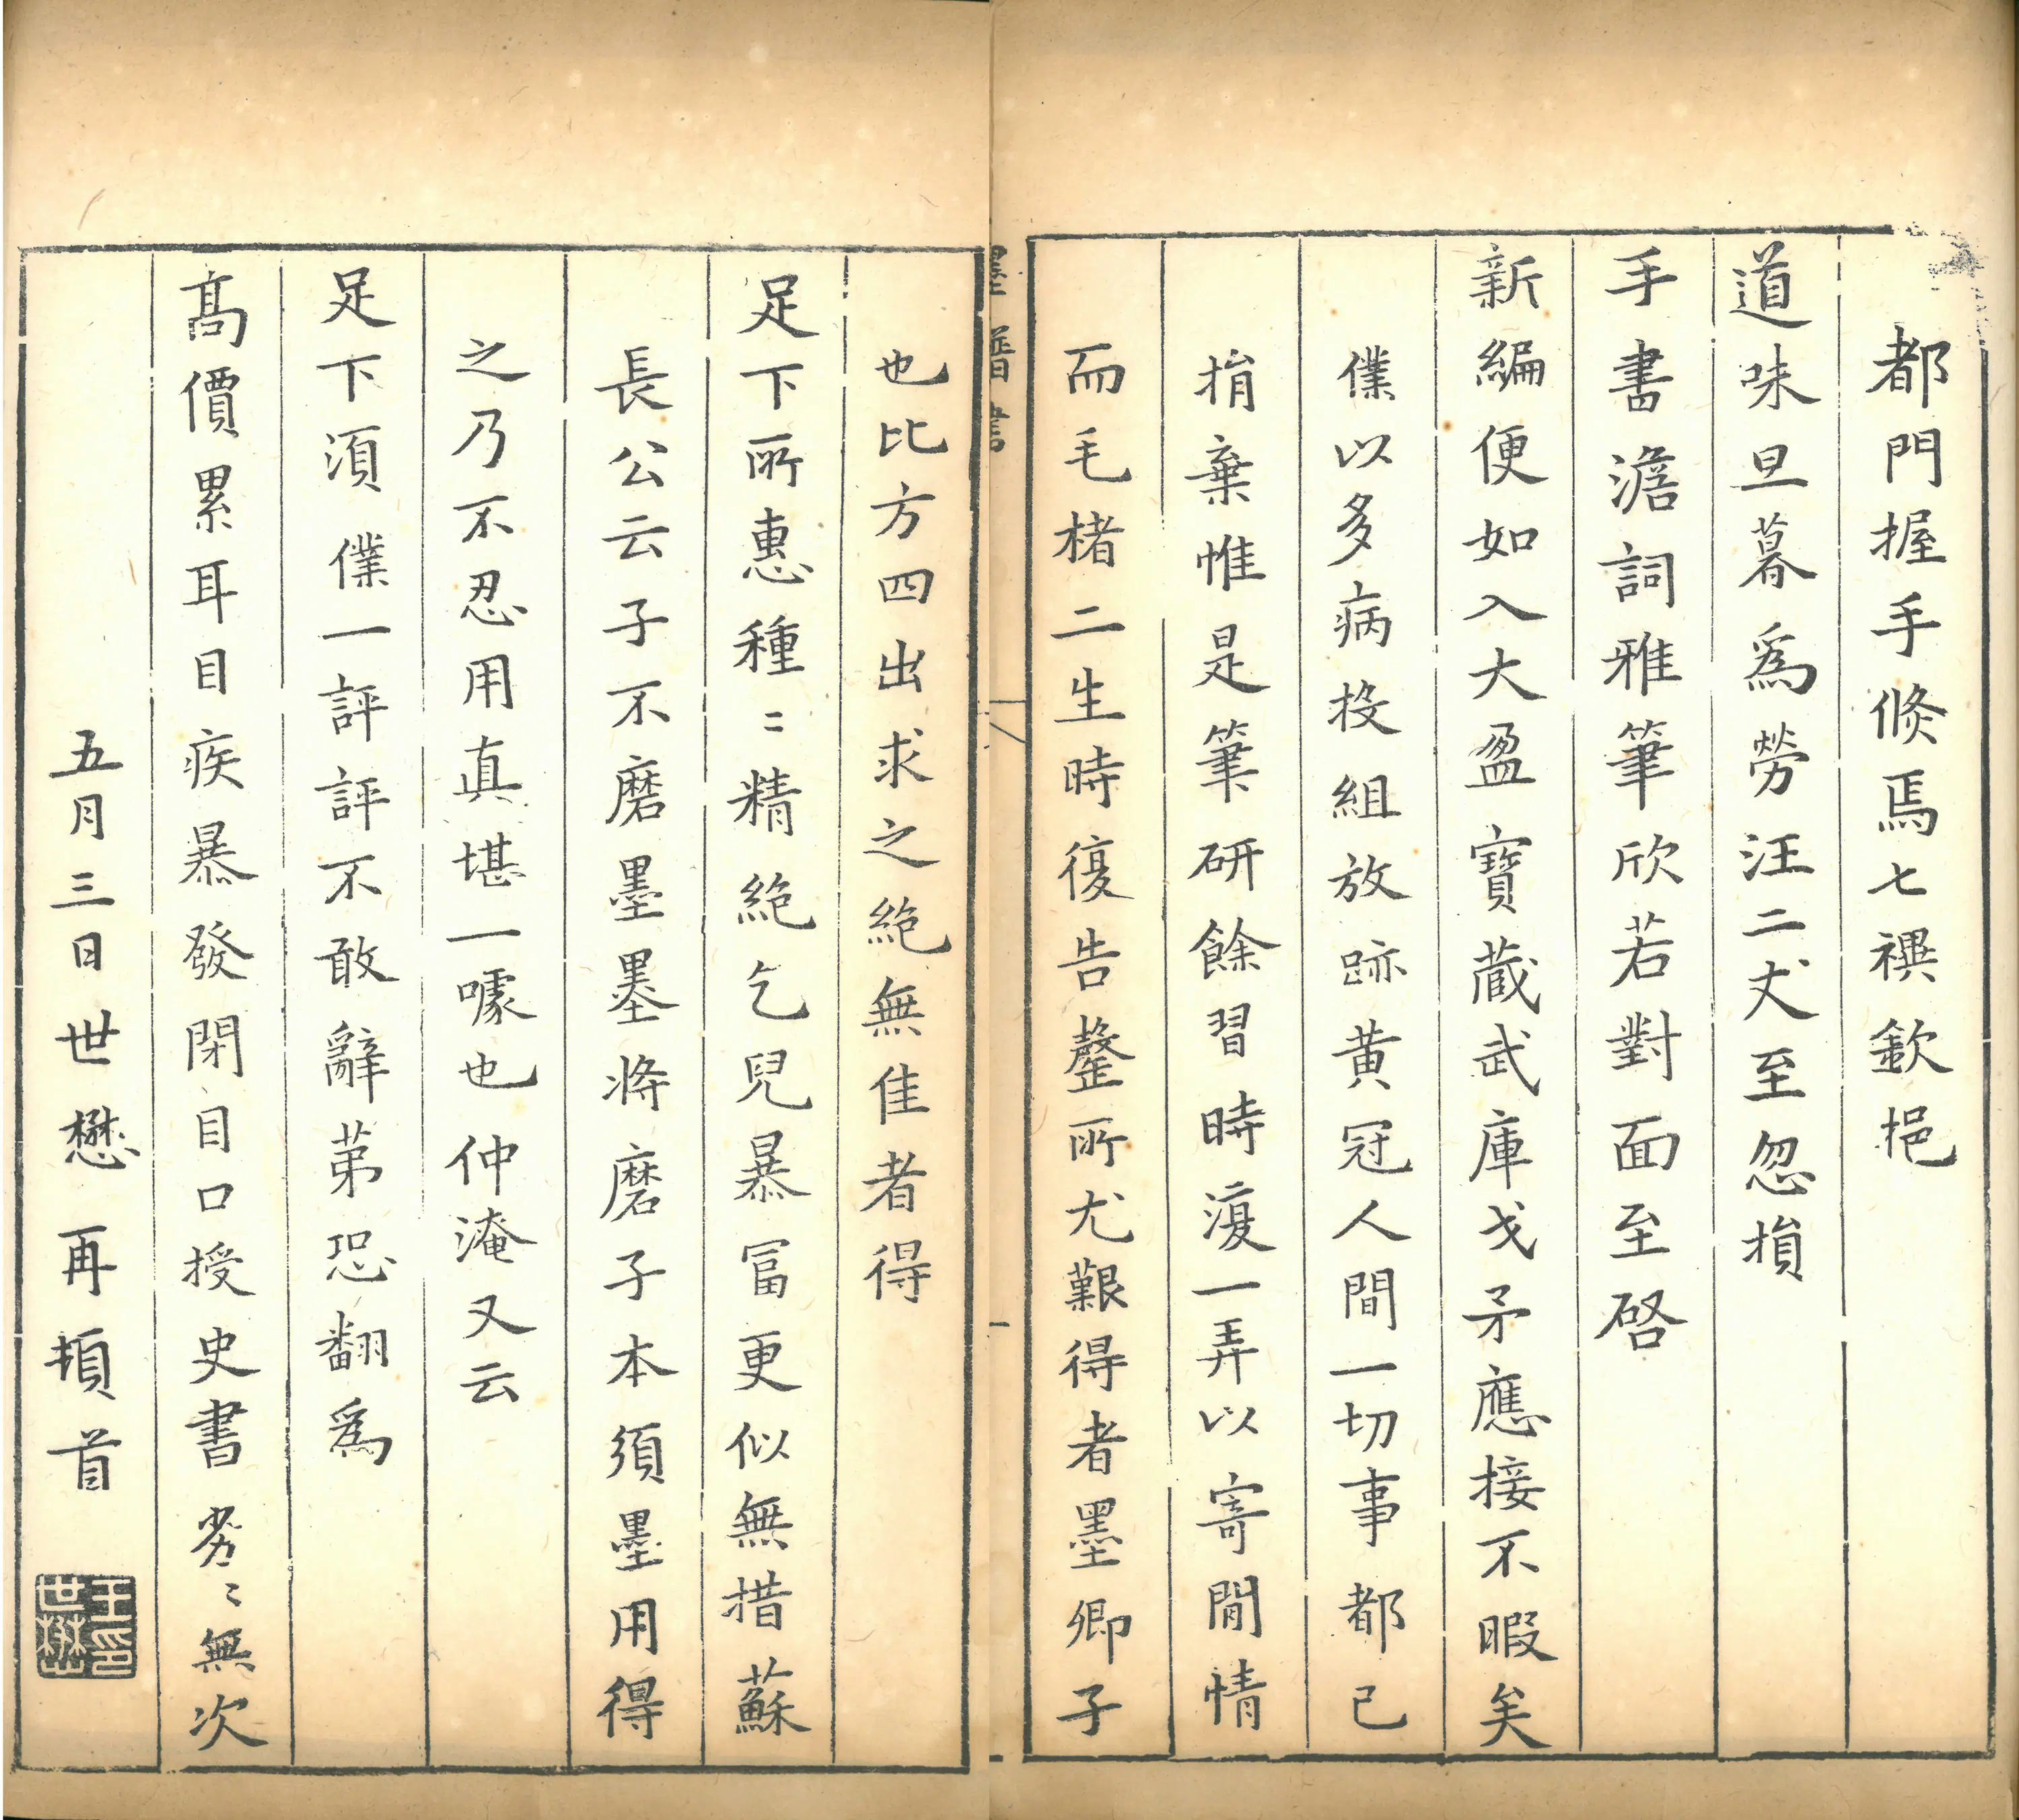 都門握手倐焉七禩欽挹
道味旦暮爲勞汪二丈至忽損
手書澹詞雅筆欣若對面至啓
新編便如入大盈寶藏武庫戈矛應接不暇矣
僕以多病投組放跡黄冠人間一切事都已
捐棄惟是筆研餘習時復一弄以寄閒情
而毛楮二生時復告罄所尤艱得者墨卿子
墨譜書
也比方四出求之絶無佳者得
足下所惠種〻精絶乞兒暴富更似無措蘇
長公云子不磨墨墨将磨子本須墨用得
之乃不忍用真堪一噱也仲淹又云
足下湏僕一評評不敢辭苐恐翻爲
髙價累耳目疾暴發閉目口授史書劣〻無次
五月三日世懋再頓首
王世懋印